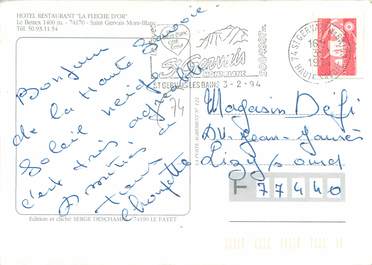 HOTEL RESTAURANT "LA FLECHE D'OR"
Le Bettex 1400 m. - 74170 - Saint Gervais Mont-Blanc
Tél. 50.93.11.54
Bonjour
de la Haute Savoie
Soleil neige
c'est très agréable
Amitiés à
tous
St Gervais
ST GERVAIS LES BAINS 3-2-94
74
Magasin Défi
Av Jean-Jaurès
Lizy s/ourcq
F 77440
Edition et cliché SERGE DESCHAMPS - 74190 LE FAYET